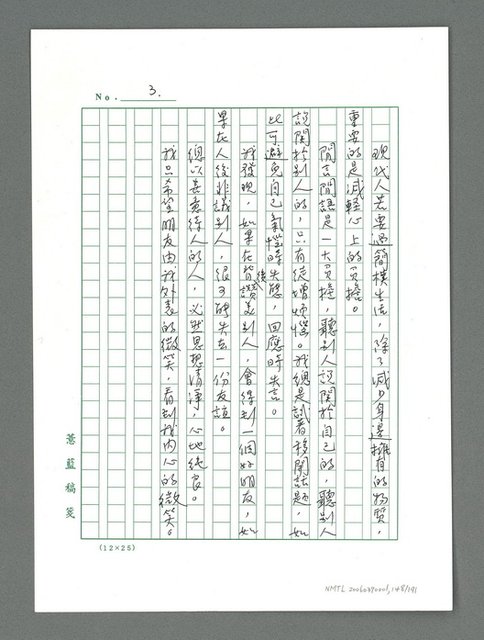 No. 3.
現代人若要過簡樸生活，除了減少身邊擁有的物質，
重要的是減輕心上的負擔。
閒言閒語是一大負擔，聽別人說關於自己的，聽別人
說關於別人的，只有徒增煩惱。我總是試著移開話題，如
此可避免自己氣惱時失態，回應時失言。
我發現，如果在背後讚美別人，會得到一個好朋友，如
果在人後非議別人，很可能失去一份友誼。
總以善意待人的人，必然思想清淨，心地純良。
我只希望朋友由我外表的微笑，看到我內心的微笑。
薏藍稿箋
(12×25)
NMTL 20060390201,148/191